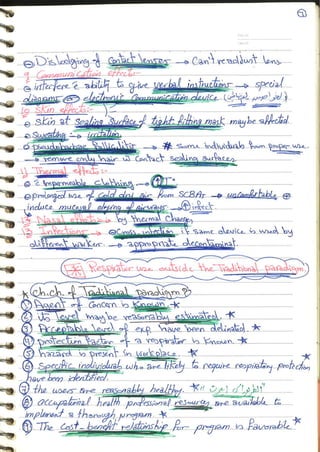 ⊙ Dislodging of contact lenses → Can't readjust lens
g) Communication effects
⊙ interfere ability to give verbal instructions → special
diagrams electronic communication device
h) Skin effects:
⊙ Skin at sealing surface of tight fitting mask may be affected.
⊙ Sweating → irritation
⊙ pseudofolliculitis → some individuals from proper use.
→ remove only hair in contact sealing surfaces.
i) Thermal effects:
⊙ impermeable clothing →
⊙ prolonged use of cold dry air from SCBAs → uncomfortable
induce mucosal drying of airways infect
Nasal effects → by thermal changes
Infections → cross infection if same device is used by
different worker. → appropriate decontaminat
Respirator use outside the Traditional paradigm
* Ch.Ch. of Traditional paradigm?
① Agent of concern is known *
② its level may be reasonably estimated. *
③ Acceptable level of exp have been delineated. *
④ protection factor of a respirator is known *
⑤ hazard is present in workplace. *
⑥ Specific individuals who are likely to require respiratory protection
have been identified.
⑦ the users are reasonably healthy. *
⑧ occupational health professional resources are available to
implement a thorough program *
⑨ The Cost-benefit relationship for program is Favorable *